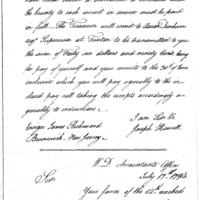 the bounty to each recruit in service must be paid
in full. The Treasurer will remit to Aaron Dunham
esqr Supervisor at Trenton to be transmitted to you
the sum of Forty six dollars and ninety cents, being
the pay of yourself and your recruits to the 31st of
inclusive which you will pay equally to the in
dividual pay call taking the receipts accordingly a-
greeably to instructions
I am Sir &c
Ensign James Richmond
Joseph Howell
Brunswick New Jersey
W.D. Accountants Office
July 17th 1794
Sir
Your favor of the 14th reached